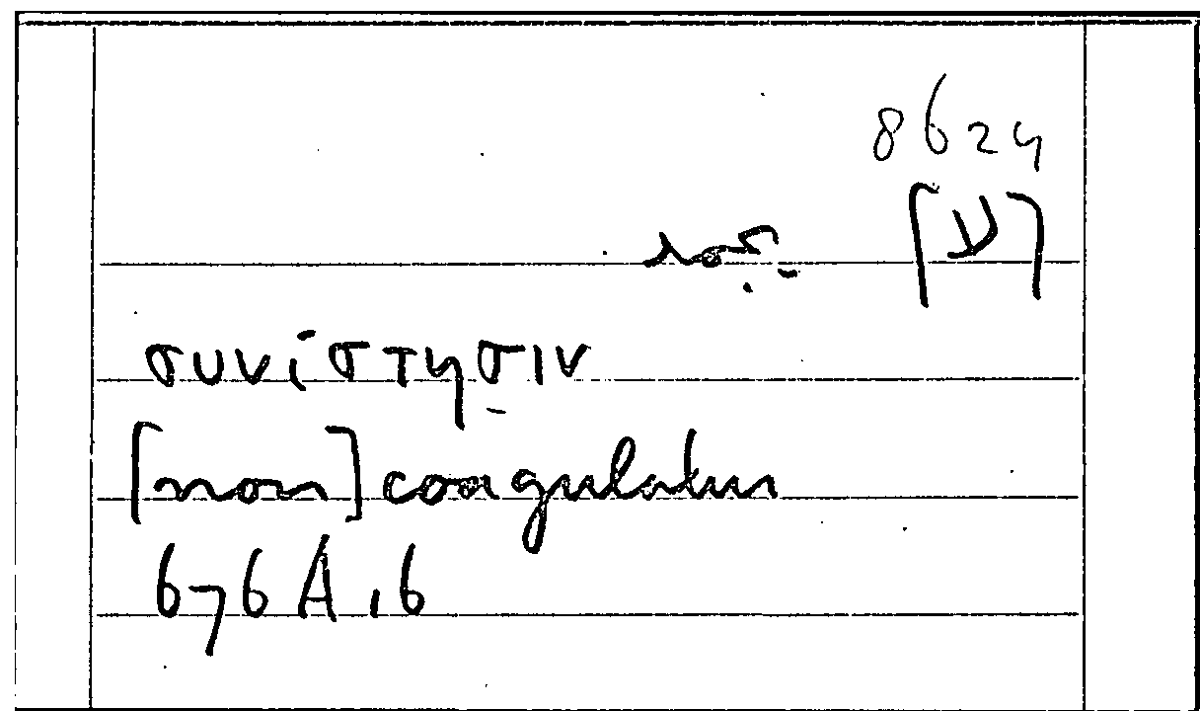 8624
[لا]
συνίστησιν
[non] coagulatur
676 A, 6